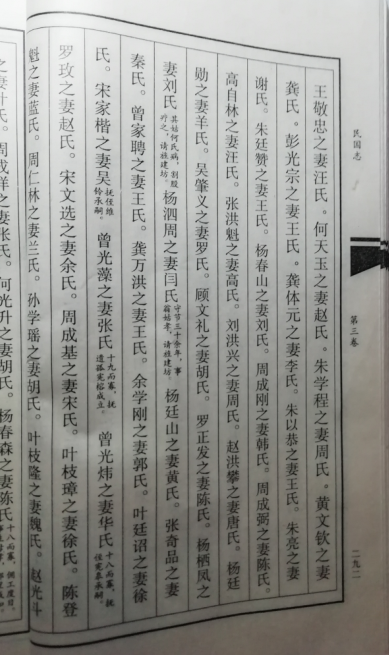 民国志
第三卷
二九一
王敬忠之妻汪氏。何天玉之妻赵氏。朱学程之妻周氏。黄文钦之妻
龚氏。彭光宗之妻王氏。龚体元之妻李氏。朱以恭之妻王氏。朱亮之妻
谢氏。朱廷赞之妻王氏。杨春山之妻刘氏。周成刚之妻韩氏。周成弼之妻陈氏。
高自林之妻汪氏。张洪魁之妻高氏。刘洪兴之妻周氏。赵洪攀之妻唐氏。杨廷
勋之妻羊氏。吴肇义之妻罗氏。顾文礼之妻胡氏。罗正发之妻陈氏。杨栖凤之
妻刘氏其姑何氏病，割股疗之，请旌建坊。杨泗周之妻闫氏守节三十余年，事翁姑孝，请旌建坊。杨廷山之妻黄氏。张奇品之妻
秦氏。曾家聘之妻王氏。龚万洪之妻王氏。余学刚之妻郭氏。叶廷诏之妻徐
氏。宋家楷之妻吴抚侄维铃承嗣。曾光藻之妻张氏十九而寡，抚遗孤宪榕成立。曾光炜之妻华氏十八而寡，抚侄宪泰承嗣。
罗玫之妻赵氏。宋文选之妻余氏。周成基之妻宋氏。叶枝璋之妻徐氏。陈登
魁之妻蓝氏。周仁林之妻兰氏。孙学瑶之妻胡氏。叶枝隆之妻魏氏。赵光斗
之妻叶氏。周成祥之妻张氏。何光升之妻胡氏。杨春森之妻陈氏十八而寡，佣工度日，